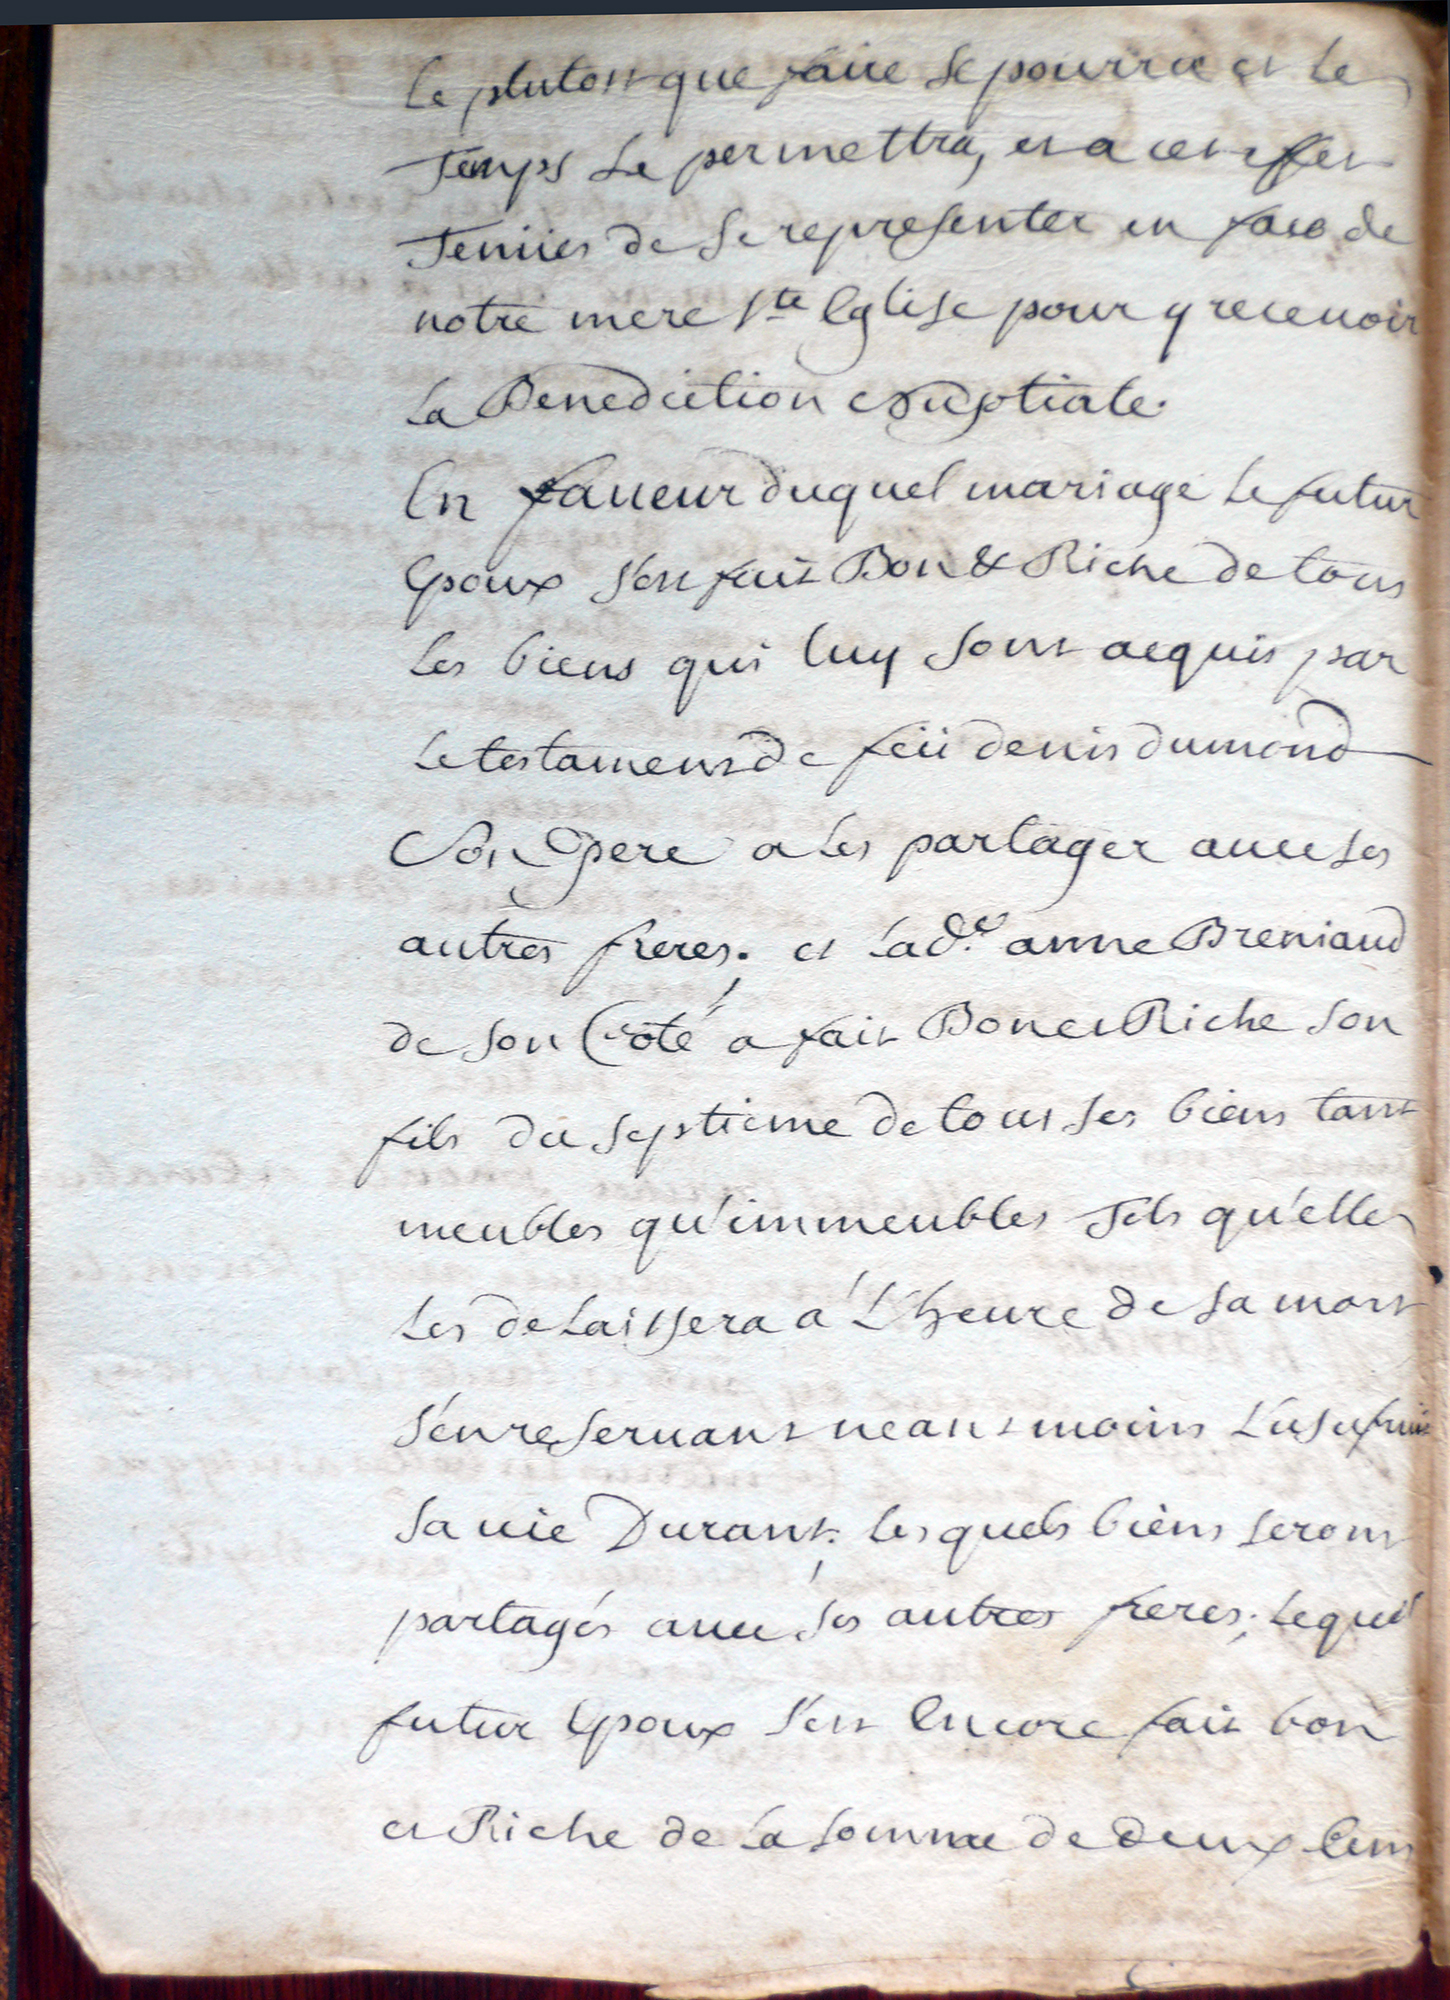 Le plutost que faire se pourra et le
Temps Le permettra, et a cet effet
Tenües de Se representer en face de
notre mere Ste Eglise pour y receuoir
La Benediction Nuptiale.
En faueur duquel mariage Le futur
Epoux s'est fait Bon & Riche de tous
Les biens qui luy sont acquis par
Le testament de feü denis dumond
Son Pere a Les partager auec ses
autres freres; et La de. anne Breniaud
de son Côté a fait Bon et Riche son
fils du septieme de tous ses biens tant
meubles qu'immeubles Tels qu'elle
Les delaissera a L'heure de sa mort
s'en reseruant neantmoins L'usufruit
sa uie Durant; les quels biens seront
partagés auec ses autres freres; Lequel
futur Epoux s'est Encore fait bon
et Riche de La somme de deux Cent